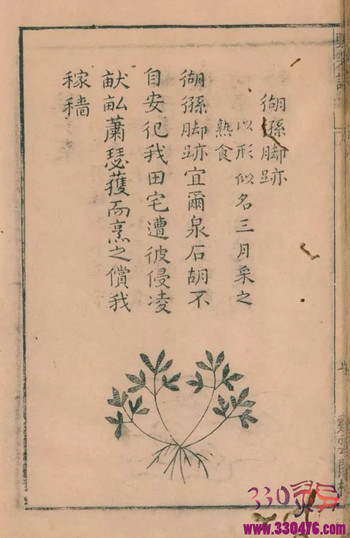 猢猻脚跡
以形似名三月采之
熟食
猢猻脚跡宜爾泉石胡不
自安犯我田宅遭彼侵凌
畎畝蕭瑟獲而烹之償我
稼穡
330
www.330476.com